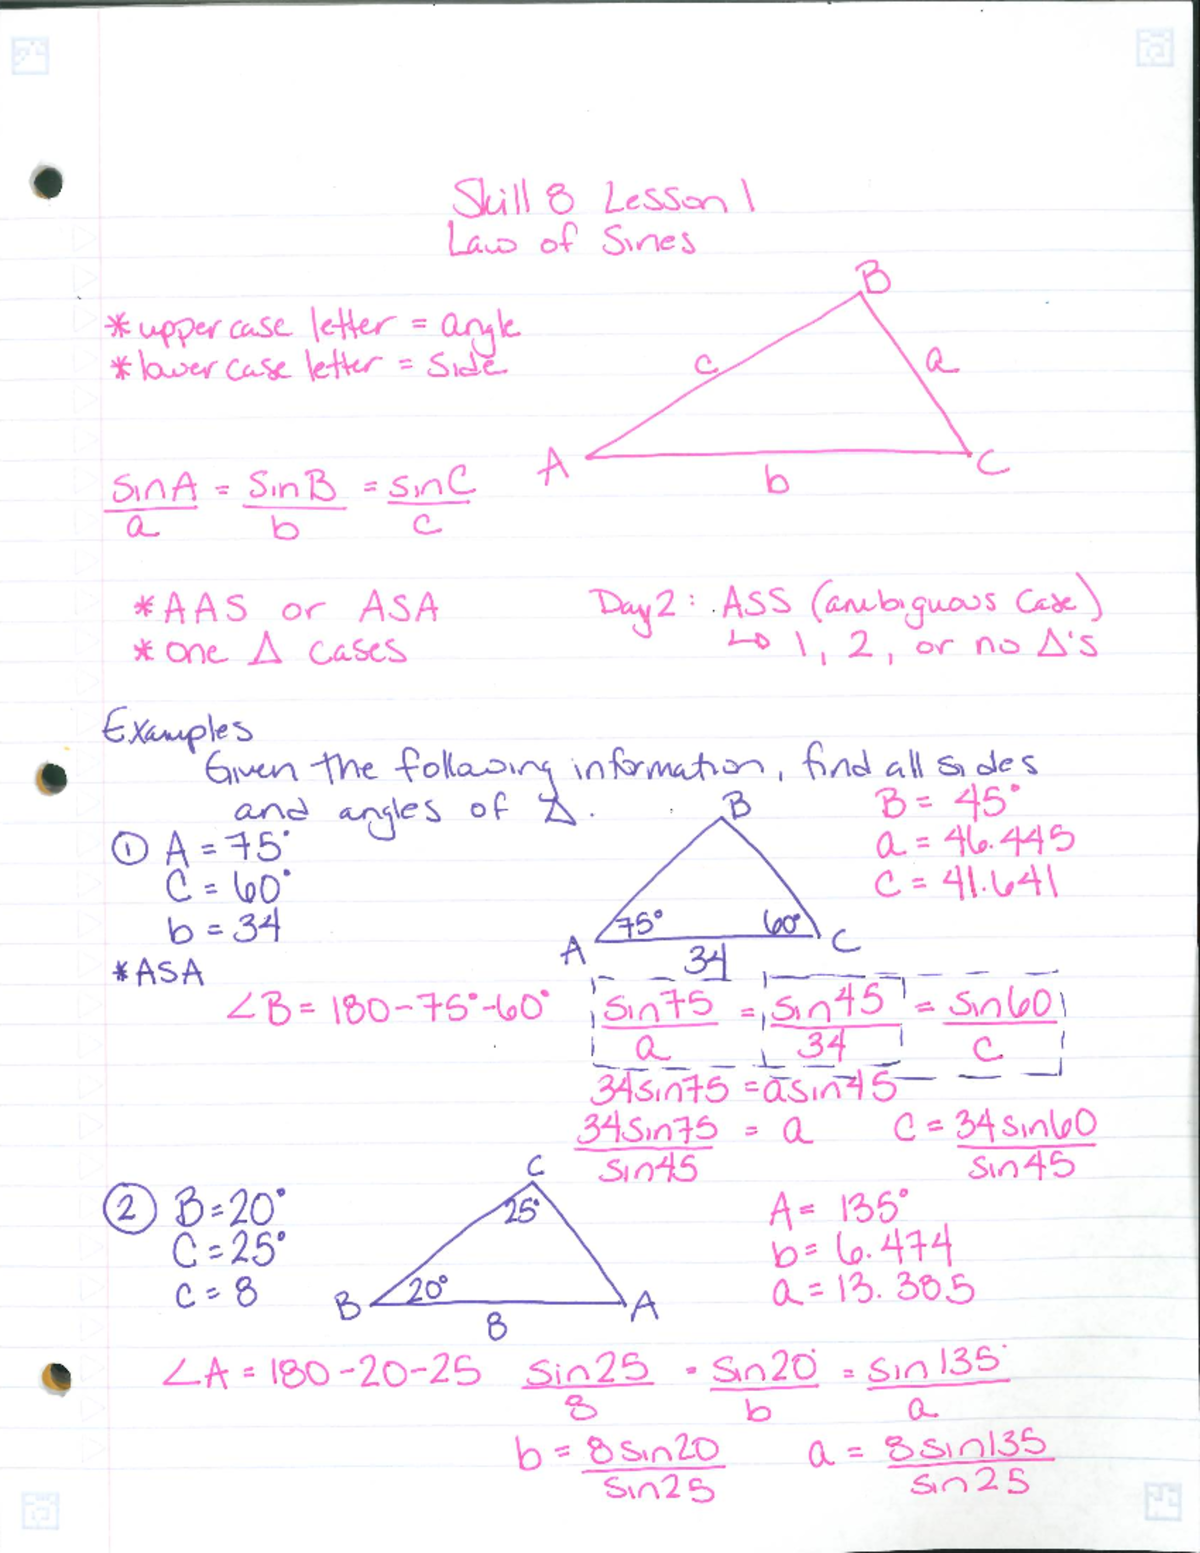 Skill 8 Lesson 1
Law of Sines
B
* upper case letter = angle
* lower case letter = side
c
a
A
b
C
sinA/a = sinB/b = sinC/c
* AAS or ASA
* one Δ cases
Day 2: ASS (ambiguous case)
↳ 1, 2, or no Δ's
Examples
Given the following information, find all sides
and angles of Δ.
① A = 75°
C = 60°
b = 34
* ASA
B
75°
60°
A
34
C
B = 45°
a = 46.445
c = 41.641
∠B = 180-75°-60°
sin75/a = sin45/34 = sin60/c
34sin75 = asin45
34sin75/sin45 = a
c = 34sin60/sin45
② B=20°
C=25°
c=8
C
25°
20°
B
8
A
A = 135°
b = 6.474
a = 13.385
∠A = 180-20-25
sin25/8 = sin20°/b = sin135°/a
b = 8sin20/sin25
a = 8sin135/sin25